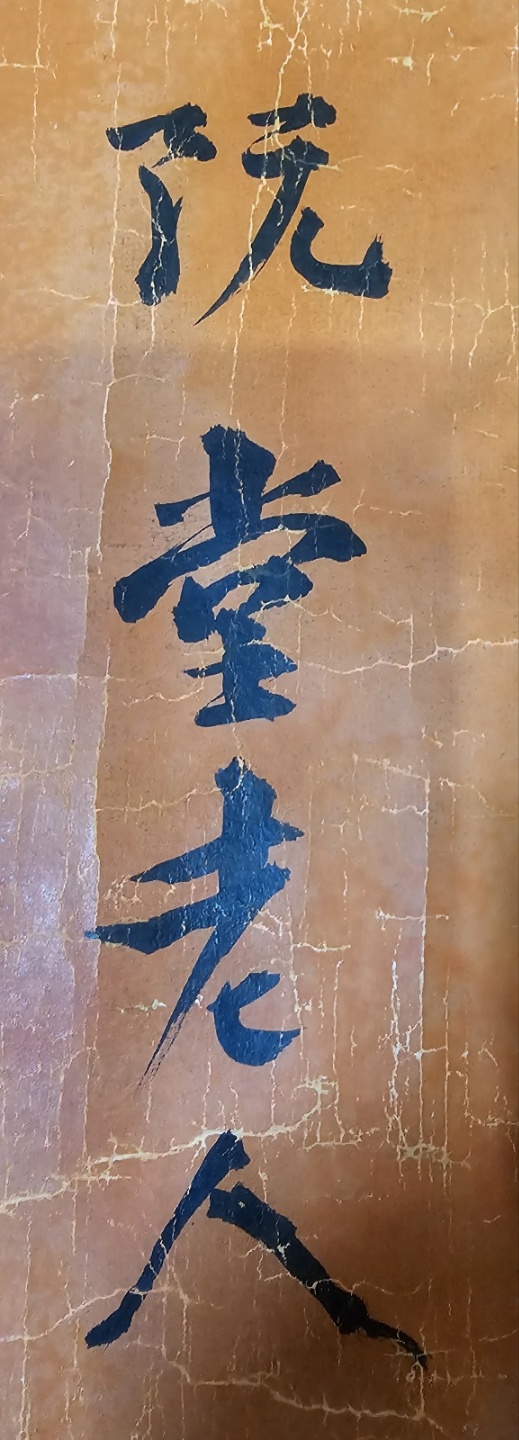 阮堂老人